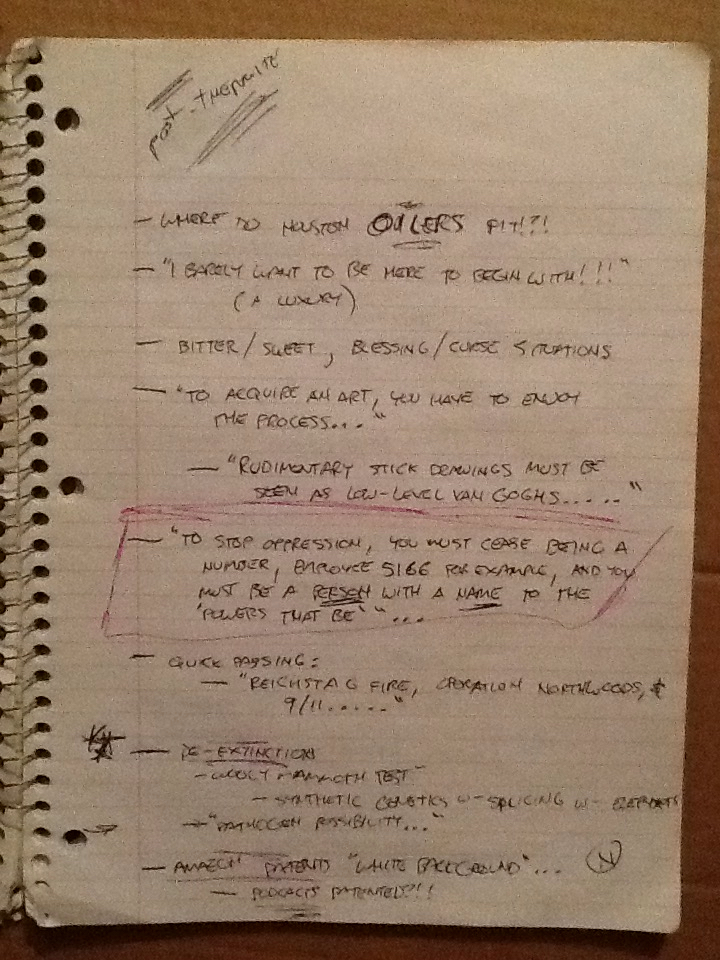 POST-THERMITE
— WHERE DO HOUSTON OILERS FIT!?!
— "I BARELY WANT TO BE HERE TO BEGIN WITH!!!"
(A LUXURY)
— BITTER/SWEET, BLESSING/CURSE SITUATIONS
— "TO ACQUIRE AN ART, YOU HAVE TO ENJOY
THE PROCESS..."
— "RUDIMENTARY STICK DRAWINGS MUST BE
SEEN AS LOW-LEVEL VAN GOGHS....."
— "TO STOP OPPRESSION, YOU MUST CEASE BEING A
NUMBER, EMPLOYEE 5166 FOR EXAMPLE, AND YOU
MUST BE A PERSON WITH A NAME TO THE
'POWERS THAT BE'"...
— QUICK PASSING:
— "REICHSTAG FIRE, OPERATION NORTHWOODS, &
9/11....."
— DE-EXTINCTION
- WOOLY MAMMOTH TEST
- SYNTHETIC GENETICS W- SPLICING W- ELEPHANTS
- "PATHOGEN POSSIBILITY..."
— AMAZON PATENTS "WHITE BACKGROUND"... N
— PODCASTS PATENTED?!!